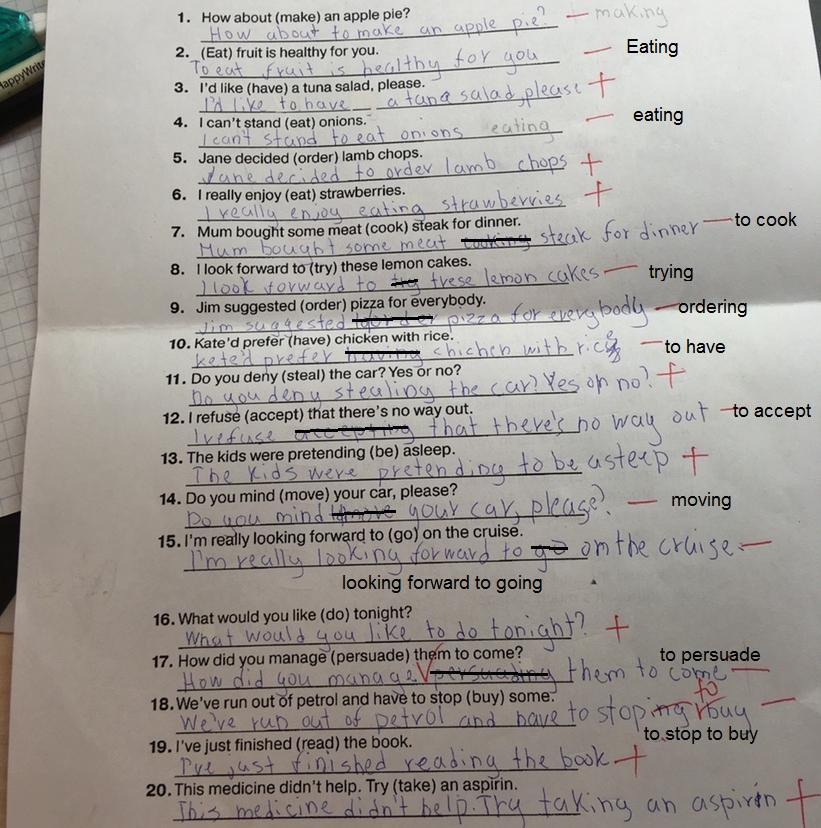 HappyWrite
1. How about (make) an apple pie?
How about to make an apple pie? — making
2. (Eat) fruit is healthy for you.
To eat fruit is healthy for you — Eating
3. I'd like (have) a tuna salad, please.
I'd like to have a tuna salad, please +
4. I can't stand (eat) onions.
I can't stand to eat onions eating — eating
5. Jane decided (order) lamb chops.
Jane decided to order lamb chops +
6. I really enjoy (eat) strawberries.
I really enjoy eating strawberries +
7. Mum bought some meat (cook) steak for dinner.
Mum bought some meat cooking steak for dinner — to cook
8. I look forward to (try) these lemon cakes.
I look forward to try trese lemon cakes — trying
9. Jim suggested (order) pizza for everybody.
Jim suggested to order pizza for everybody — ordering
10. Kate'd prefer (have) chicken with rice.
kete'd prefer having chichen with rice — to have
11. Do you deny (steal) the car? Yes or no?
Do you deny stealing the car? Yes or no? +
12. I refuse (accept) that there's no way out.
I refuse accepting that there's no way out — to accept
13. The kids were pretending (be) asleep.
The kids were pretending to be asteep +
14. Do you mind (move) your car, please?
Do you mind to move your car, please? — moving
15. I'm really looking forward to (go) on the cruise.
I'm really looking forward to go on the cruise —
looking forward to going
16. What would you like (do) tonight?
What would you like to do tonight? +
17. How did you manage (persuade) them to come?
to persuade
How did you manage persuading them to come —
18. We've run out of petrol and have to stop (buy) some.
to
We've run out of petrol and have to stoping buy —
to stop to buy
19. I've just finished (read) the book.
I've just finished reading the book +
20. This medicine didn't help. Try (take) an aspirin.
This medicine didn't help. Try taking an aspirin +